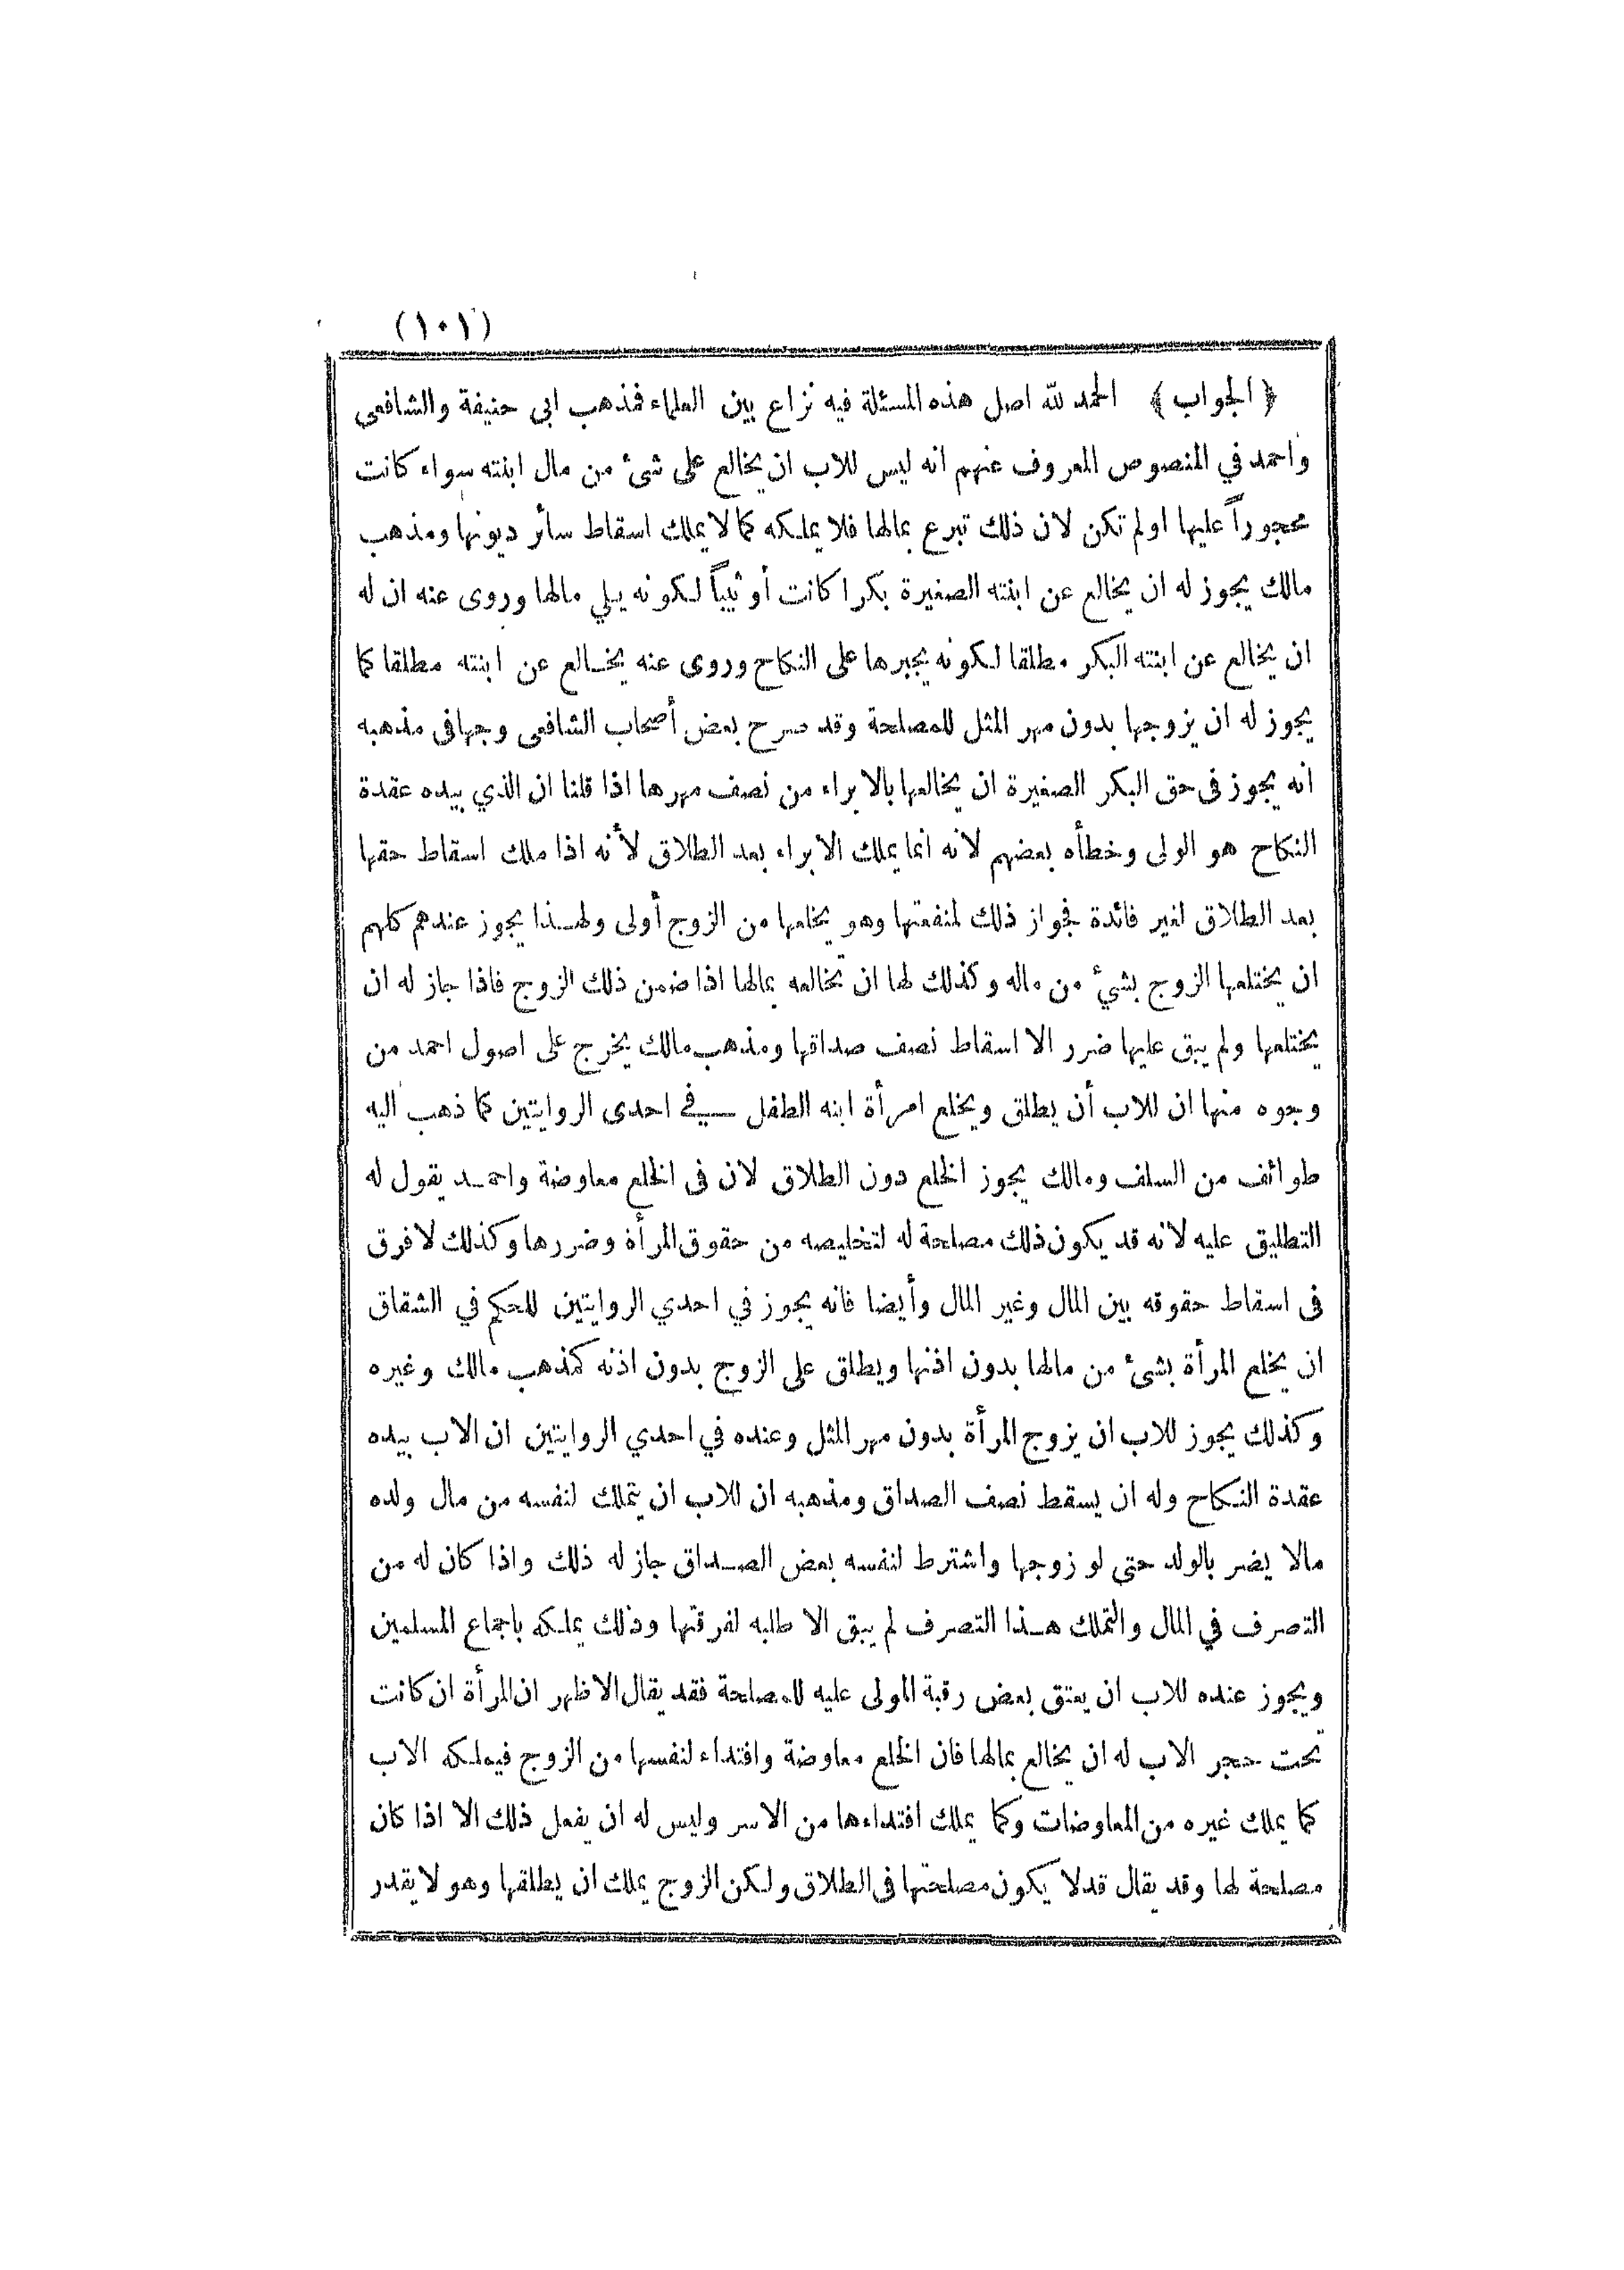 (١٠١)
﴿الجواب﴾ الحمد لله اصل هذه المسئلة فيه نزاع بين العلماء فمذهب ابى حنيفة والشافعى
واحمد في المنصوص المعروف عنهم انه ليس للاب ان يخالع على شئ من مال ابنته سواء كانت
محجوراً عليها اولم تكن لان ذلك تبرع بمالها فلا يملكه كما لا يملك اسقاط سائر ديونها ومذهب
مالك يجوز له ان يخالع عن ابنته الصغيرة بكرا كانت أو ثيباً لكونه يلي مالها وروى عنه ان له
ان يخالع عن ابنته البكر مطلقا لكونه يجبرها على النكاح وروى عنه يخالع عن ابنته مطلقا كما
يجوز له ان يزوجها بدون مهر المثل للمصلحة وقد صرح بعض أصحاب الشافعى وجهافى مذهبه
انه يجوز فى حق البكر الصغيرة ان يخالعها بالابراء من نصف مهرها اذا قلنا ان الذي بيده عقدة
النكاح هو الولى وخطأه بعضهم لانه انما يملك الابراء بعد الطلاق لأنه اذا ملك اسقاط حقها
بعد الطلاق لغير فائدة فجواز ذلك لمنفعتها وهو يخلعها من الزوج أولى ولهذا يجوز عندهم كلهم
ان يختلعها الزوج بشيء من ماله وكذلك لها ان تخالعه بمالها اذا ضمن ذلك الزوج فاذا جاز له ان
يختلعها ولم يبق عليها ضرر الا اسقاط نصف صداقها ومذهب مالك يخرج على اصول احمد من
وجوه منها ان للاب أن يطلق ويخلع امرأة ابنه الطفل في احدى الروايتين كما ذهب اليه
طوائف من السلف ومالك يجوز الخلع دون الطلاق لان فى الخلع معاوضة واحمد يقول له
التطليق عليه لانه قد يكون ذلك مصلحة له لتخليصه من حقوق المرأة وضررها وكذلك لا فرق
فى اسقاط حقوقه بين المال وغير المال وأيضا فانه يجوز في احدي الروايتين للحكم في الشقاق
ان يخلع المرأة بشئ من مالها بدون اذنها ويطلق على الزوج بدون اذنه كمذهب مالك وغيره
وكذلك يجوز للاب ان يزوج المرأة بدون مهر المثل وعنده في احدي الروايتين ان الاب بيده
عقدة النكاح وله ان يسقط نصف الصداق ومذهبه ان للاب ان يتملك لنفسه من مال ولده
مالا يضر بالولد حتى لو زوجها واشترط لنفسه بعض الصداق جاز له ذلك واذا كان له من
التصرف في المال والتملك هذا التصرف لم يبق الا طلبه لفرقتها وذلك يملكه باجماع المسلمين
ويجوز عنده للاب ان يعتق بعض رقبة المولى عليه للمصلحة فقد يقال الاظهر ان المرأة ان كانت
تحت حجر الاب له ان يخالع بمالها فان الخلع معاوضة وافتداء لنفسها من الزوج فيملكه الاب
كما يملك غيره من المعاوضات وكما يملك افتداءها من الاسر وليس له ان يفعل ذلك الا اذا كان
مصلحة لها وقد يقال قد لا يكون مصلحتها فى الطلاق ولكن الزوج يملك ان يطلقها وهو لا يقدر